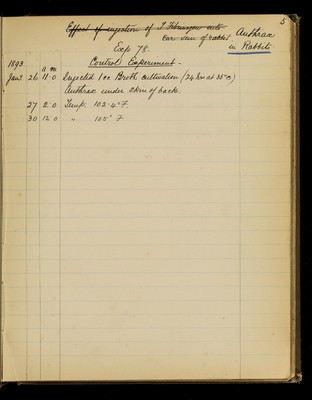 5
Effect of injection of T Fibrinogen into
Ear vein of rabbit
Anthrax
in Rabbits
Exp 78.
Control Experiment -
1893 a m
Jany 26 11.0 Injected 1cc Broth cultivation (24 hrs at 35°C)
Anthrax under skin of back.
27 2.0 Temp. 102.4° F.
30 12.0 " 105° F